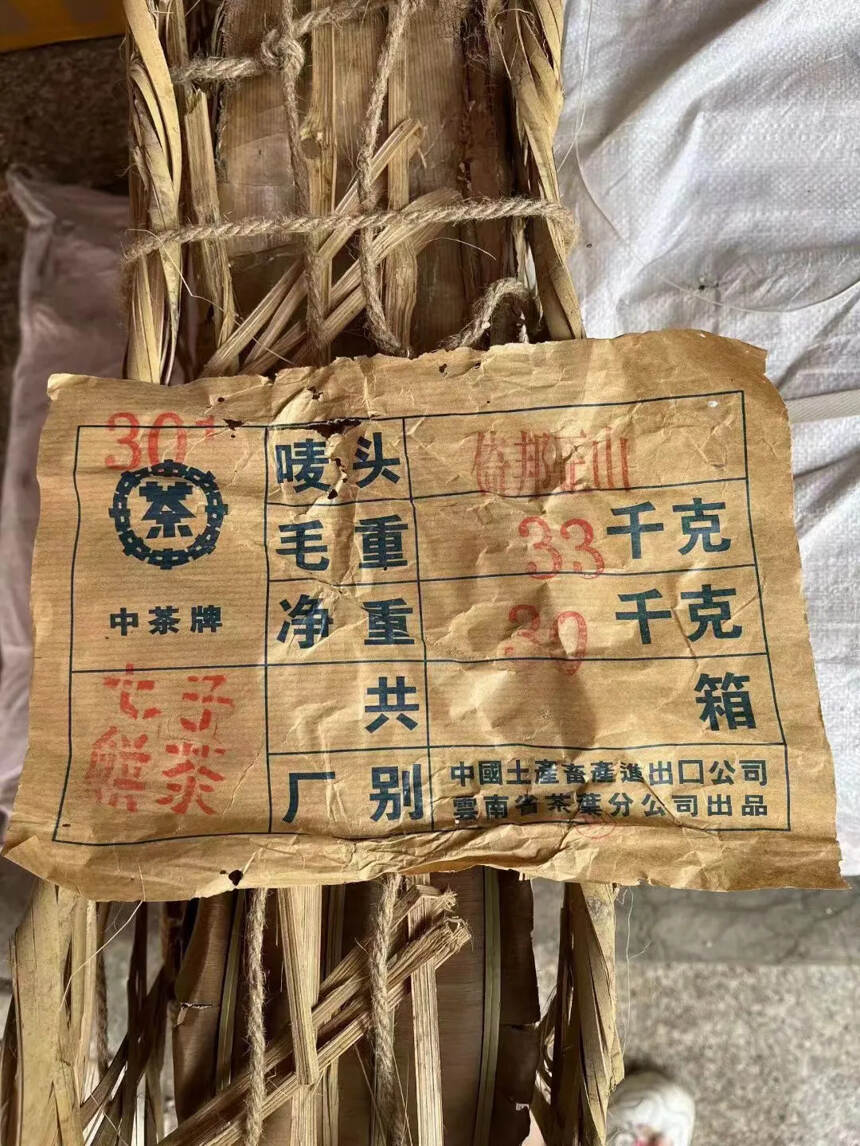 茶
中茶牌
七子
餅茶
唛头 倚邦
毛重 33 千克
净重 30 千克
共 箱
厂别 中國土產畜產進出口公司
雲南省茶葉分公司出品